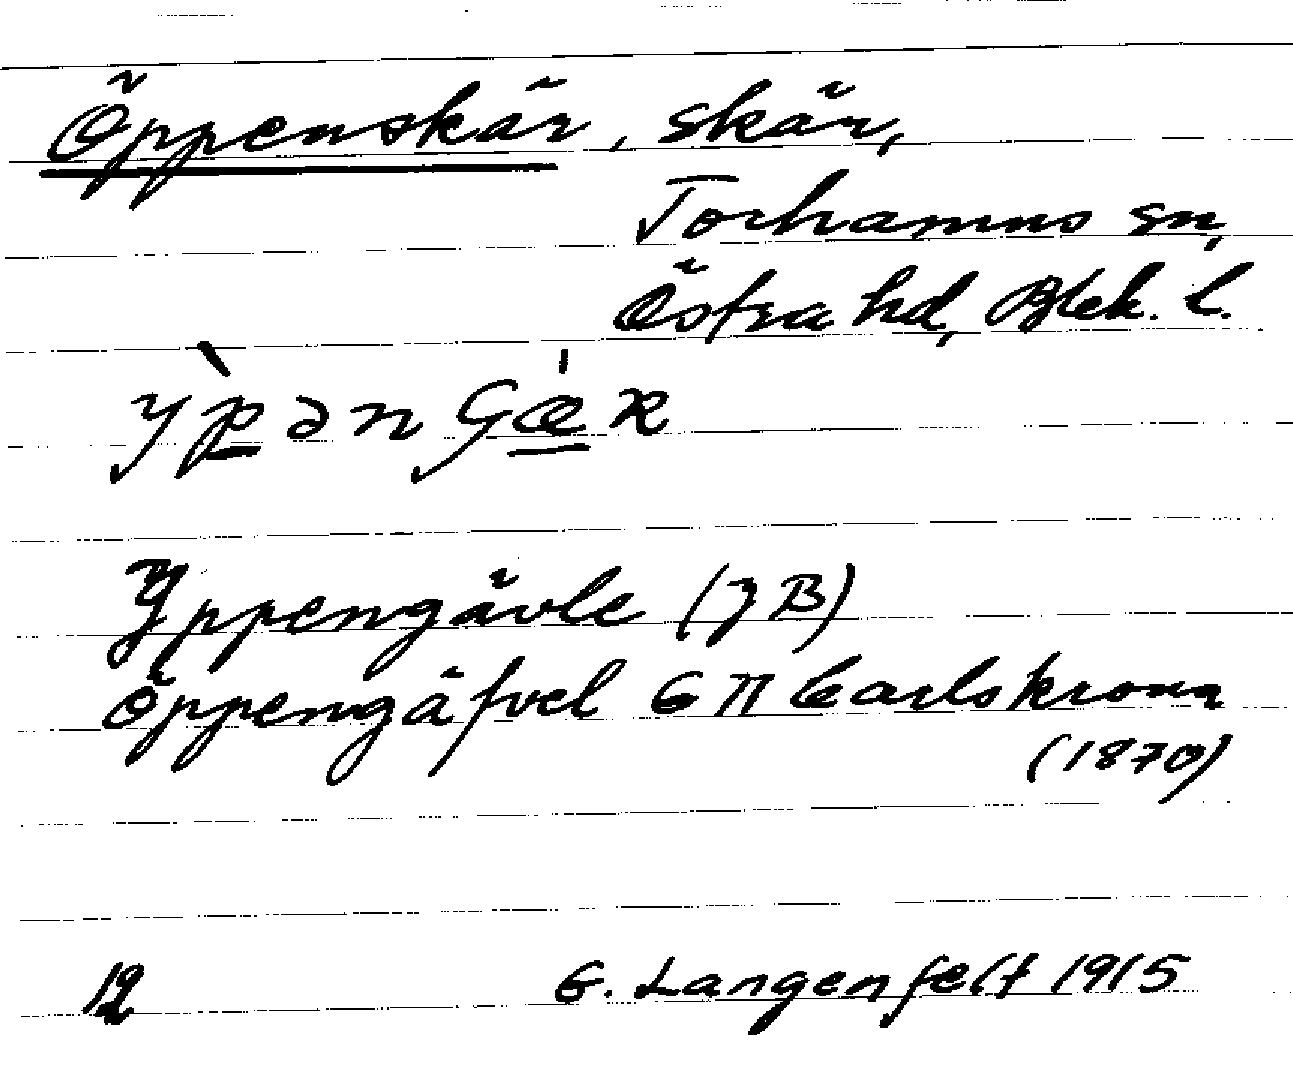 Öppenskär, skär,
Torhamns sn,
Östra hd, Blek. l.
Yppengävle (JB)
Öppengäfvel GII Carlskrona
(1870)
12 G. Langenfelt 1915